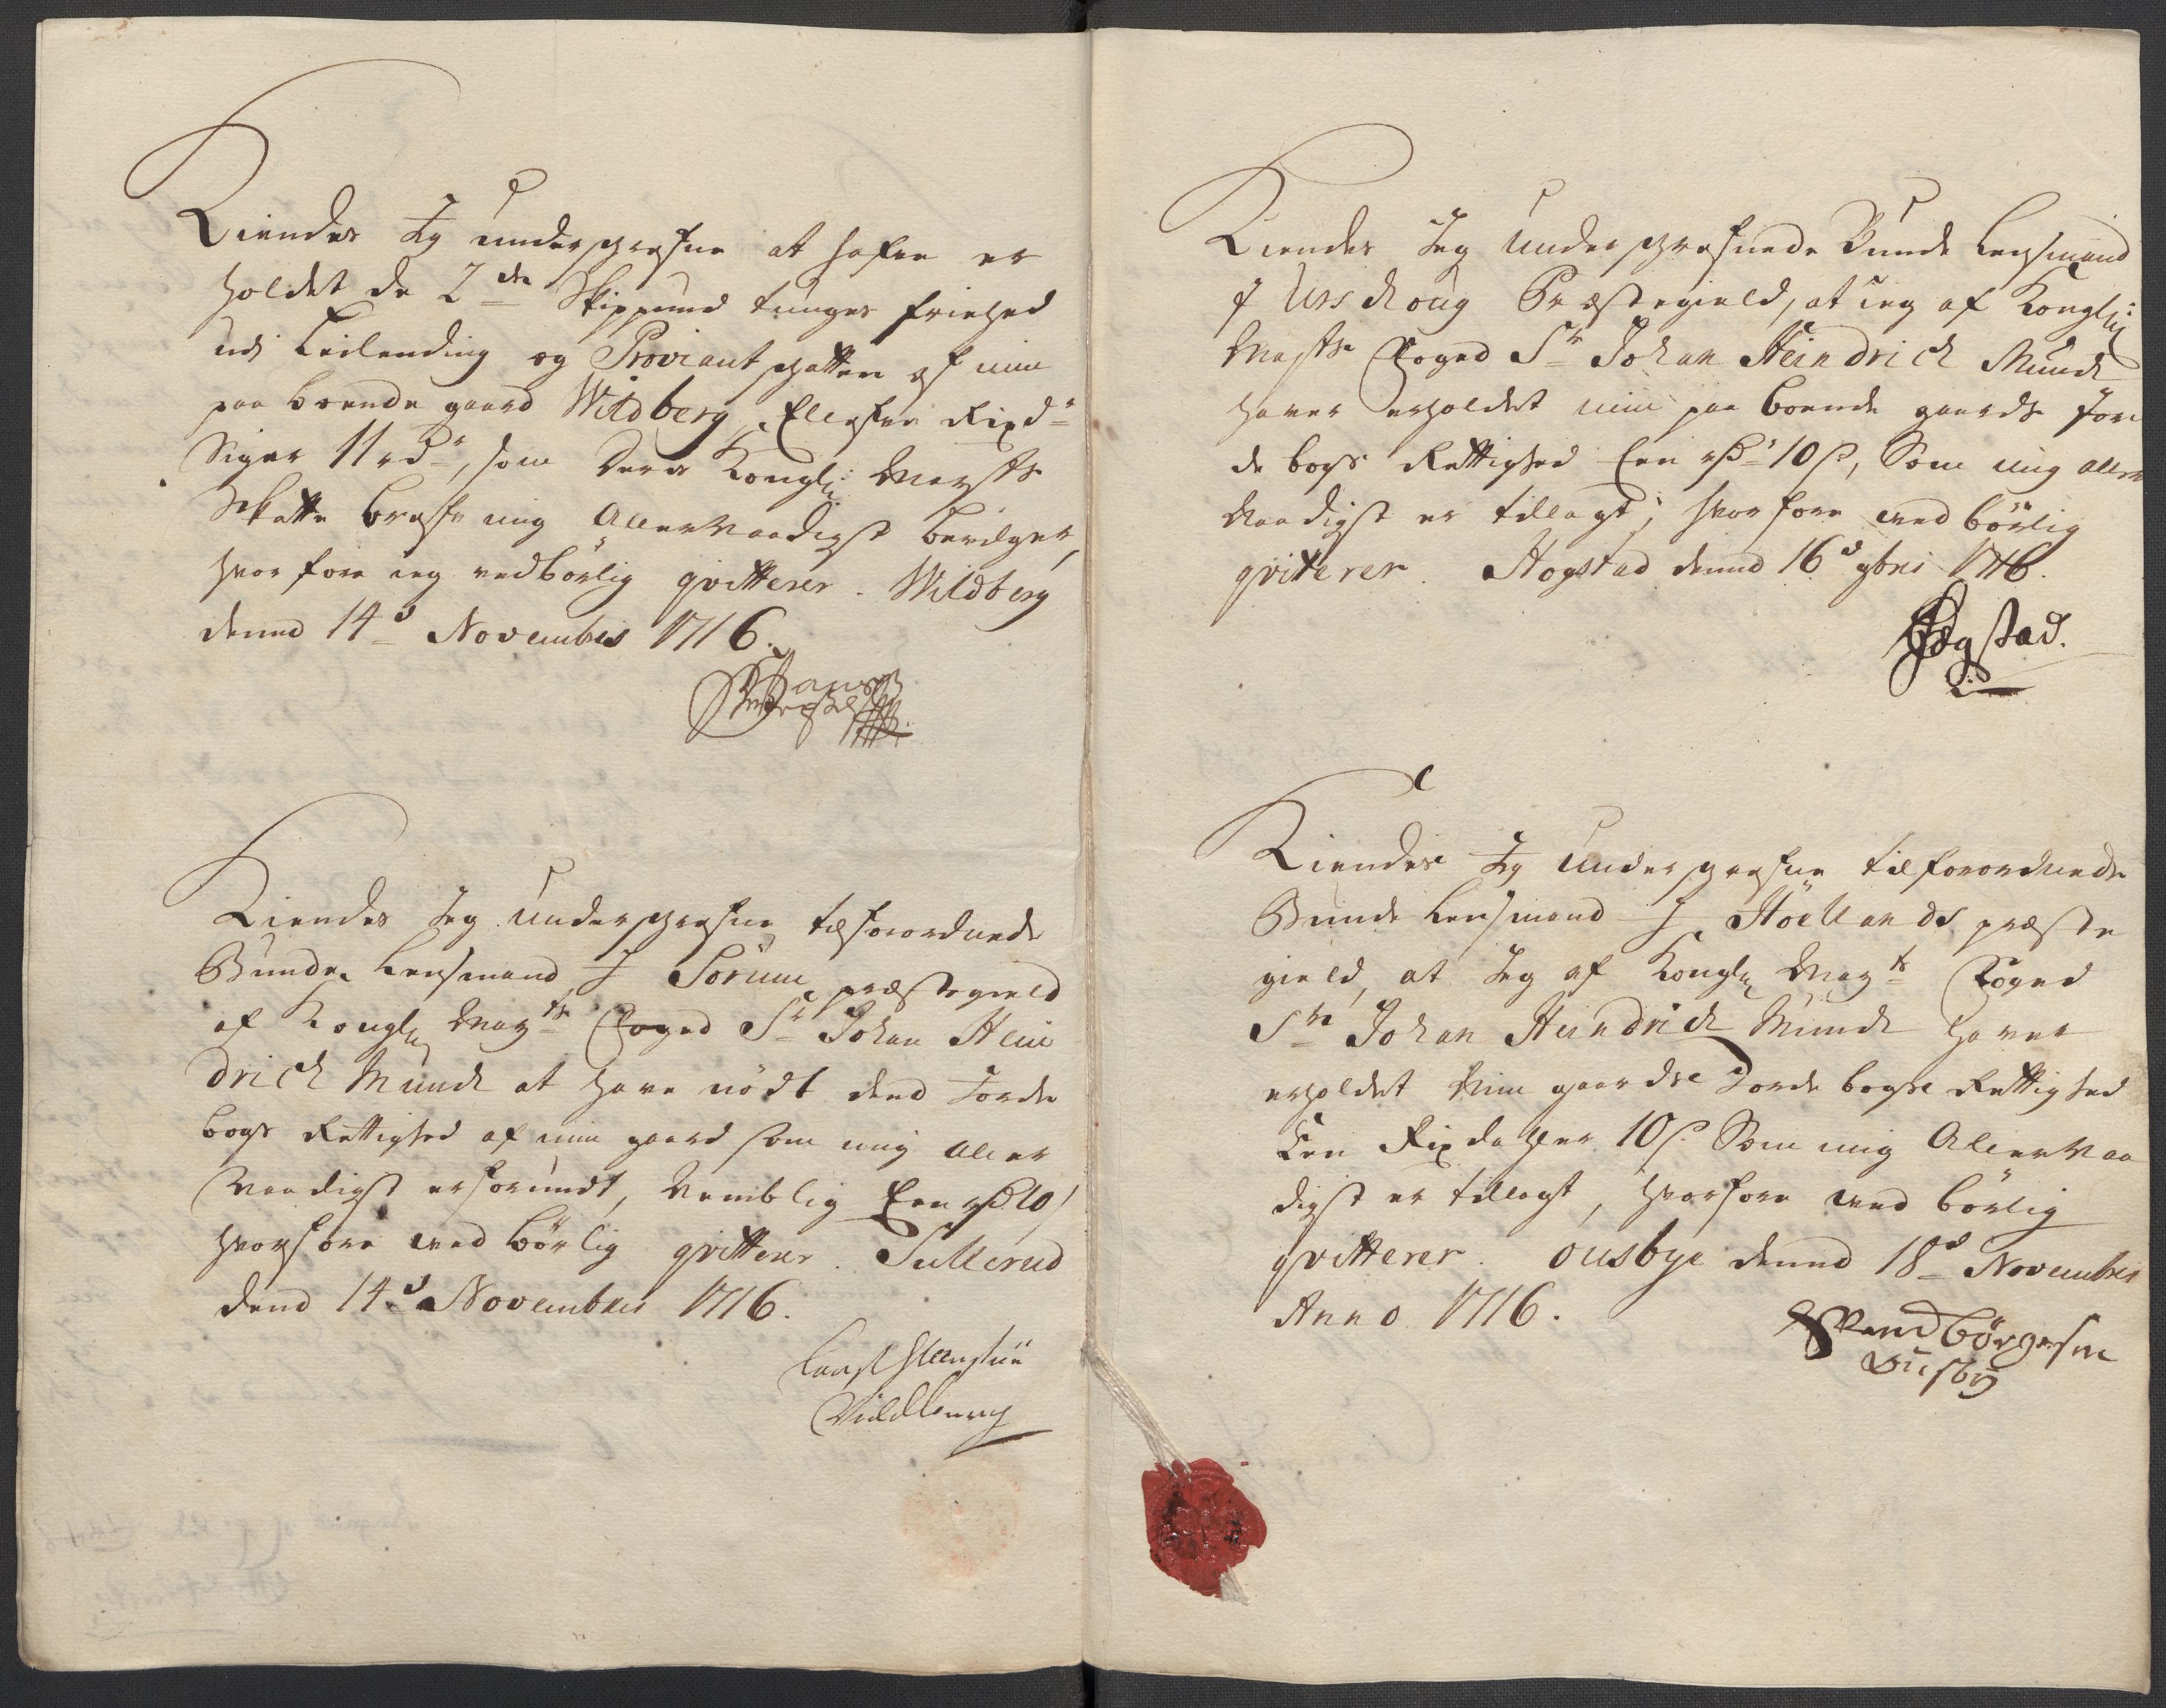 Kiendes Jeg underschrefne at hafve er
holdet de 2de Skippund tunges friehed
udj Leilending og Proviant schatten af min
paa boende gaard Wildberg, Ellefve Rixdr
Siger 11 rdr, som Deres Kongl: Maysts
Skatte brefve mig Allernaadigst bevilger,
hvor fore ieg vedbörlig qvitterer. Wildberg
dennd 14d Novembris 1716.

Kiendes Jeg underschrefne tilforordnede
Bunde Lensmand J Sörum præstegield
af Kongl: Mayts Foged Sr Johan Hein
drich Munch at have nödt dend Jorde
bogs Rettighed af min gaard som mig aller
Naadigst er forundt, Nemblig Een rd 10 s
hvorfore ved börlig qvitterer. Sullerud
dend 14d Novembris 1716.
Wildberg

Kiendes Jeg Underschrefnede Bunde Lensmand
J Urschoug Præstegield, at ieg af Kongl:
Maysts Foged Sr Johan Heindrich Munch
haver erholdet min paa boende gaards Jor
de bogs Rettighed Een rdr 10 s, Som mig aller
Naadigst er tillagt; hvor fore ved börlig
qviterer. Hogstad dennd 16d 9bris 1716.
Hogstad.

Kiendes Jeg Underschrefne tilforordnede
Bunde Lensmand J Höellands præste
gield, at Jeg af Kongl: Mayts Foged
Sr Johan Heindrich Munch haver
erholdet Min gaardes Jorde bogs Rettighed
Een Rixdaler 10 s. Som mig Allernaa
digst er tillagt, hvorfore ved börlig
qvitterer. Ousbye dennd 18d Novembris
Anno 1716.
Svend börgersen
Ousby